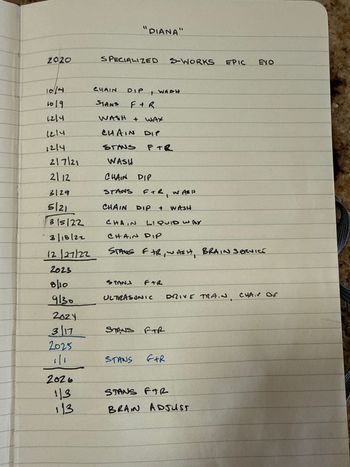 "DIANA"
2020 SPECIALIZED S-WORKS EPIC EVO
10/4 CHAIN DIP, WASH
10/9 STANS F+R
12/4 WASH + WAX
12/4 CHAIN DIP
12/4 STANS F+R
2/7/21 WASH
2/12 CHAIN DIP
3/29 STANS F+R, WASH
5/21 CHAIN DIP + WASH
3/5/22 CHAIN LIQUID WAX
3/15/22 CHAIN DIP
12/27/22 STANS F+R, WASH, BRAIN SERVICE
2023
8/10 STANS F+R
9/30 ULTRASONIC DRIVE TRAIN, CHAIN
2024
3/17 STANS F+R
2025
1/1 STANS F+R
2026
1/3 STANS F+R
1/3 BRAIN ADJUST